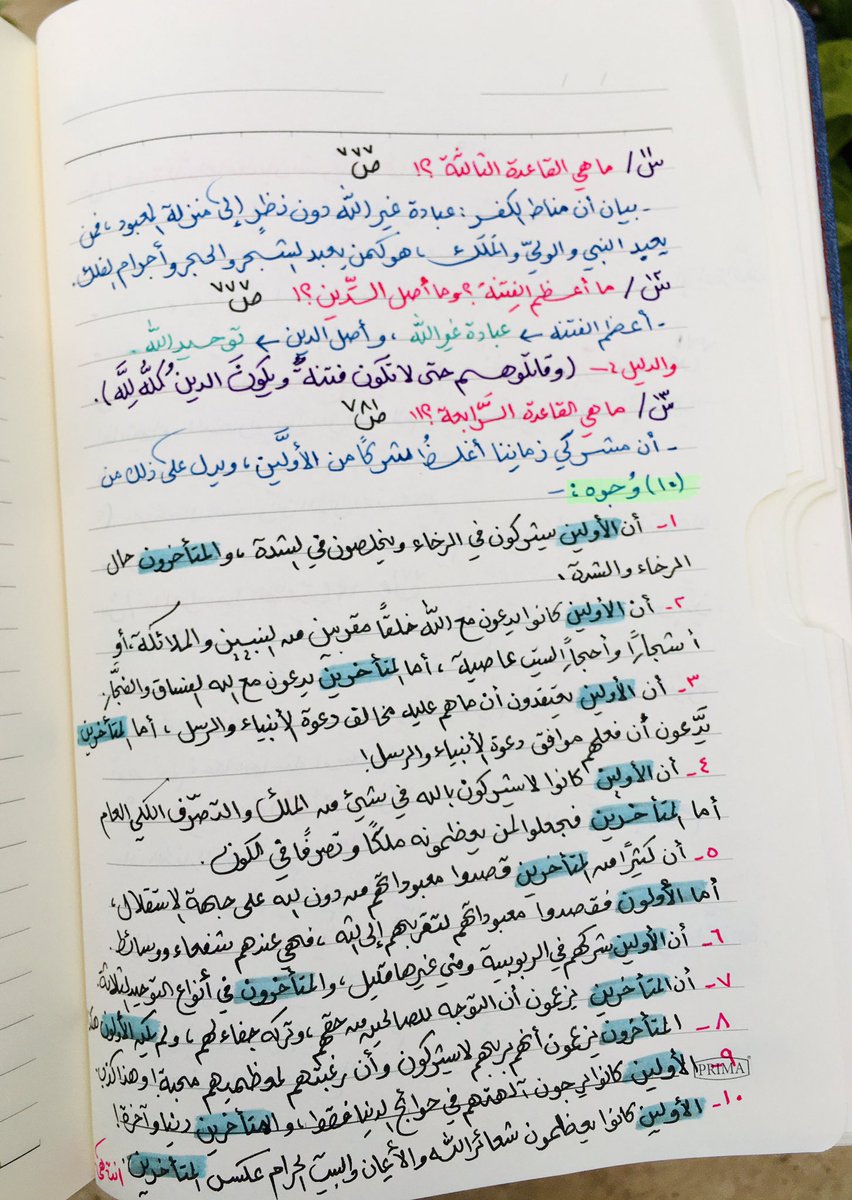 س١١/ ما هي القاعدة الثالثة ؟! ص٧٧٧
- بيان أن مناط الكفر : عبادة غير الله دون نظرٍ إلى منزلة المعبود ، فمن
يعبد النبي والوليّ والمَلَك ، هو كمن يعبد الشجر والحجر وأجرام الفلك.
س١٢/ ما أعظم الفتنة ؟ وما أصل الدِّين ؟! ص٧٧٧
- أعظم الفتنه ← عبادة غير الله ، وأصل الدين ← توحيد الله .
والدليل :- (وقاتلوهم حتى لا تكون فتنة ويكونَ الدين كلُّه لِلَّه).
س١٣/ ما هي القاعدة الرَّابعة ؟!! ص٧٨١
- أن مشركي زماننا أغلظُ شركًا من الأولَّين ، ويدل على ذلك من
(١٠) وُجوه :-
١- أن الأولين يشركون في الرخاء ويخلصون في الشدة ، والمتأخرون حال
الرخاء والشدة .
٢- أن الأولين كانوا يدعون مع الله خلقًا مقربين من النبيين والملائكة ، أو
أشجارًا وأحجارًا ليست عاصية ، أما المتأخرين يدعون مع الله الفساق والفجَّار.
٣- أن الأولين يعتقدون أن ما هم عليه مخالف دعوة الأنبياء والرسل ، أما المتأخرين
يَّدعون أن فعلهم موافق دعوة الأنبياء والرسل !
٤- أن الأولين كانوا لا يشركون بالله في شيئ من الملك والتصرّف الكلي العام
أما المتأخرين فجعلوا لمن يعظمونه ملكًا وتصرفًا في الكون .
٥- أن كثيرًا من المتأخرين قصدوا معبوداتهم من دون الله على جهة الاستقلال ،
أما الأولون فقصدوا معبوداتهم لتقربهم إلى الله ، فهي عندهم شفعاء ووسائط .
٦- أن الأولين شركهم في الربوبية وفي غيرها قليل ، والمتأخرون في أنواع التوحيد الثلاثة.
٧- أن المتأخرين يزعمون أن التوجه للصالحين من حقهم ، وتركه جفاء لهم ، ولم يكن الأولون
٨- المتأخرون يزعمون أنهم بربهم لا يشركون وأن رغبتهم لمعظميهم محبة ! وهذا كذب
٩- الأولين كانوا يرجون آلهتهم في حوائج الدنيا فقط ، والمتأخرين دنيا وآخرة !
PRIMA
١٠- الأولين كانوا يعظمون شعائر الله والأيمان والبيت الحرام عكس المتأخرين